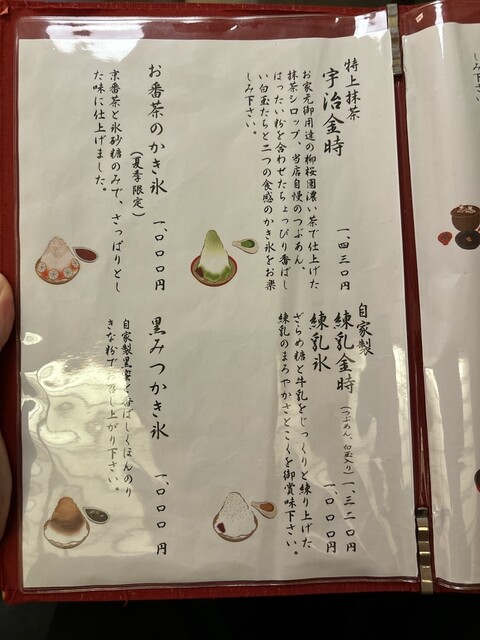 特上抹茶
宇治金時
一、四三〇円
お家元御用達の柳桜園濃い茶で仕上げた
抹茶シロップ、当店自慢のつぶあん、
はったい粉を合わせたちょっぴり香ばし
い白玉たちと二つの食感のかき氷をお楽
しみ下さい。
お番茶のかき氷
(夏季限定)
一、〇〇〇円
京番茶と氷砂糖のみで、さっぱりとし
た味に仕上げました。
自家製
練乳金時
(つぶあん、白玉入り)
一、三二〇円
練乳氷
一、〇〇〇円
ざらめ糖と牛乳をじっくりと練り上げた
練乳のまろやかさとこくを御賞味下さい。
黒みつかき氷
一、〇〇〇円
自家製黒蜜と香ばしくほんのり
きな粉で
召し上がり下さい。
しみ下さい